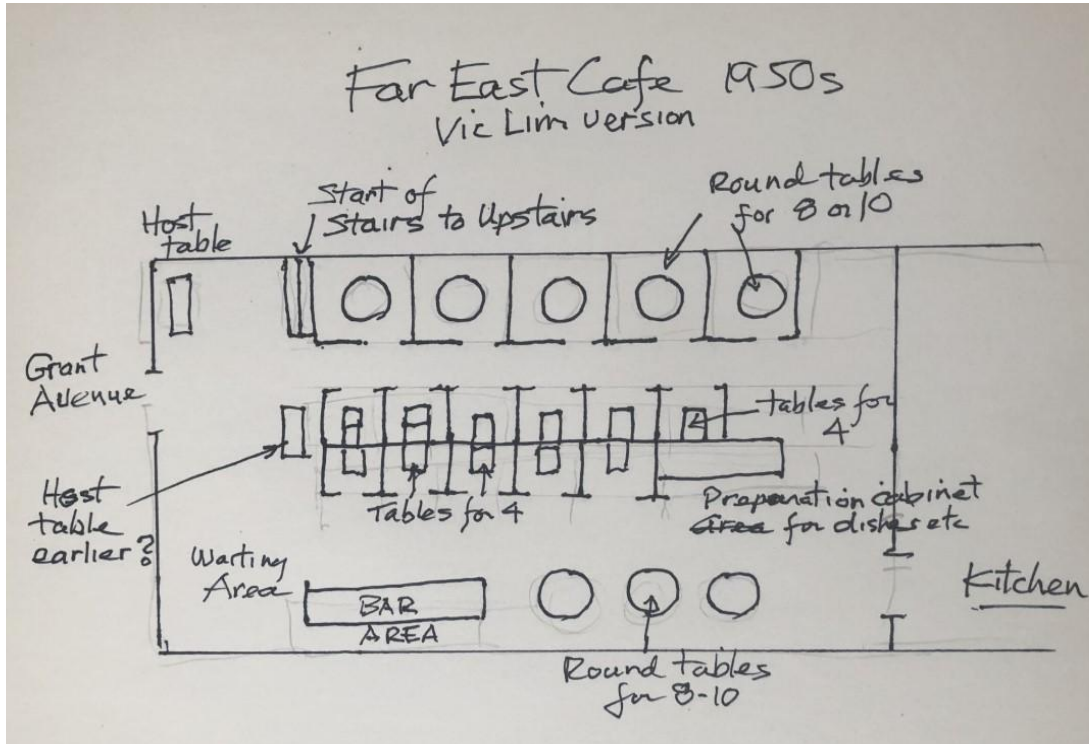 Far East Cafe 1950s
Vic Lim version
Host
table
Start of
Stairs to Upstairs
Round tables
for 8 or 10
Grant
Avenue
Tables for
4
Host
table
earlier?
Tables for 4
Preparation cabinet
for dishes etc
Waiting
Area
BAR
AREA
Kitchen
Round tables
for 8-10